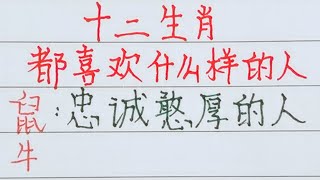 十二生肖
都喜欢什么样的人
鼠:忠诚憨厚的人
牛